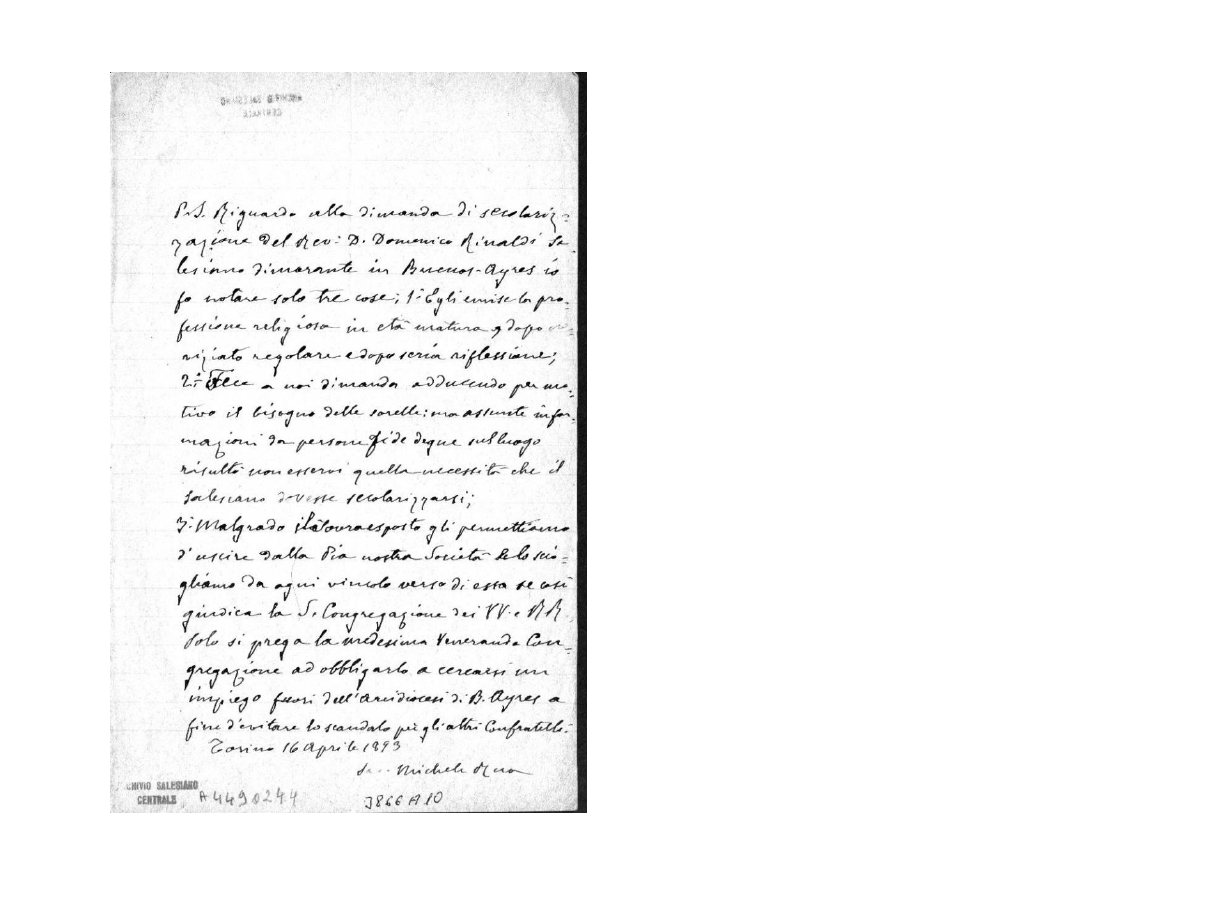 ARCHIVIO SALESIANO
CENTRALE
P.S. Riguardo alla dimanda di secolariz-
zazione del Rev: D. Domenico Rinaldi Sa-
lesiano dimorante in Buenos-Ayres io
fo notare solo tre cose; 1° Egli emise la pro-
fessione religiosa in età matura, dopo no-
viziato regolare e dopo seria riflessione;
2° Fece a noi dimanda adducendo per mo-
tivo il bisogno delle sorelle: ma assunte infor-
mazioni da persone fide degne sul luogo
risultò non esservi quella necessità che il
Salesiano dovesse secolarizzarsi;
3° Malgrado il sovraesposto gli permettiamo
d'uscire dalla Pia nostra Società e lo scio-
gliamo da ogni vincolo verso di essa se così
giudica la S. Congregazione dei VV. e RR.
Solo si prega la medesima Veneranda Con-
gregazione ad obbligarlo a cercarsi un
impiego fuori dell'Arcidiocesi di B. Ayres a
fine d'evitare lo scandalo per gli altri Confratelli.
Torino 16 Aprile 1893
Michele Rua
CHIVIO SALESIANO
CENTRALE A4490244 3866A10